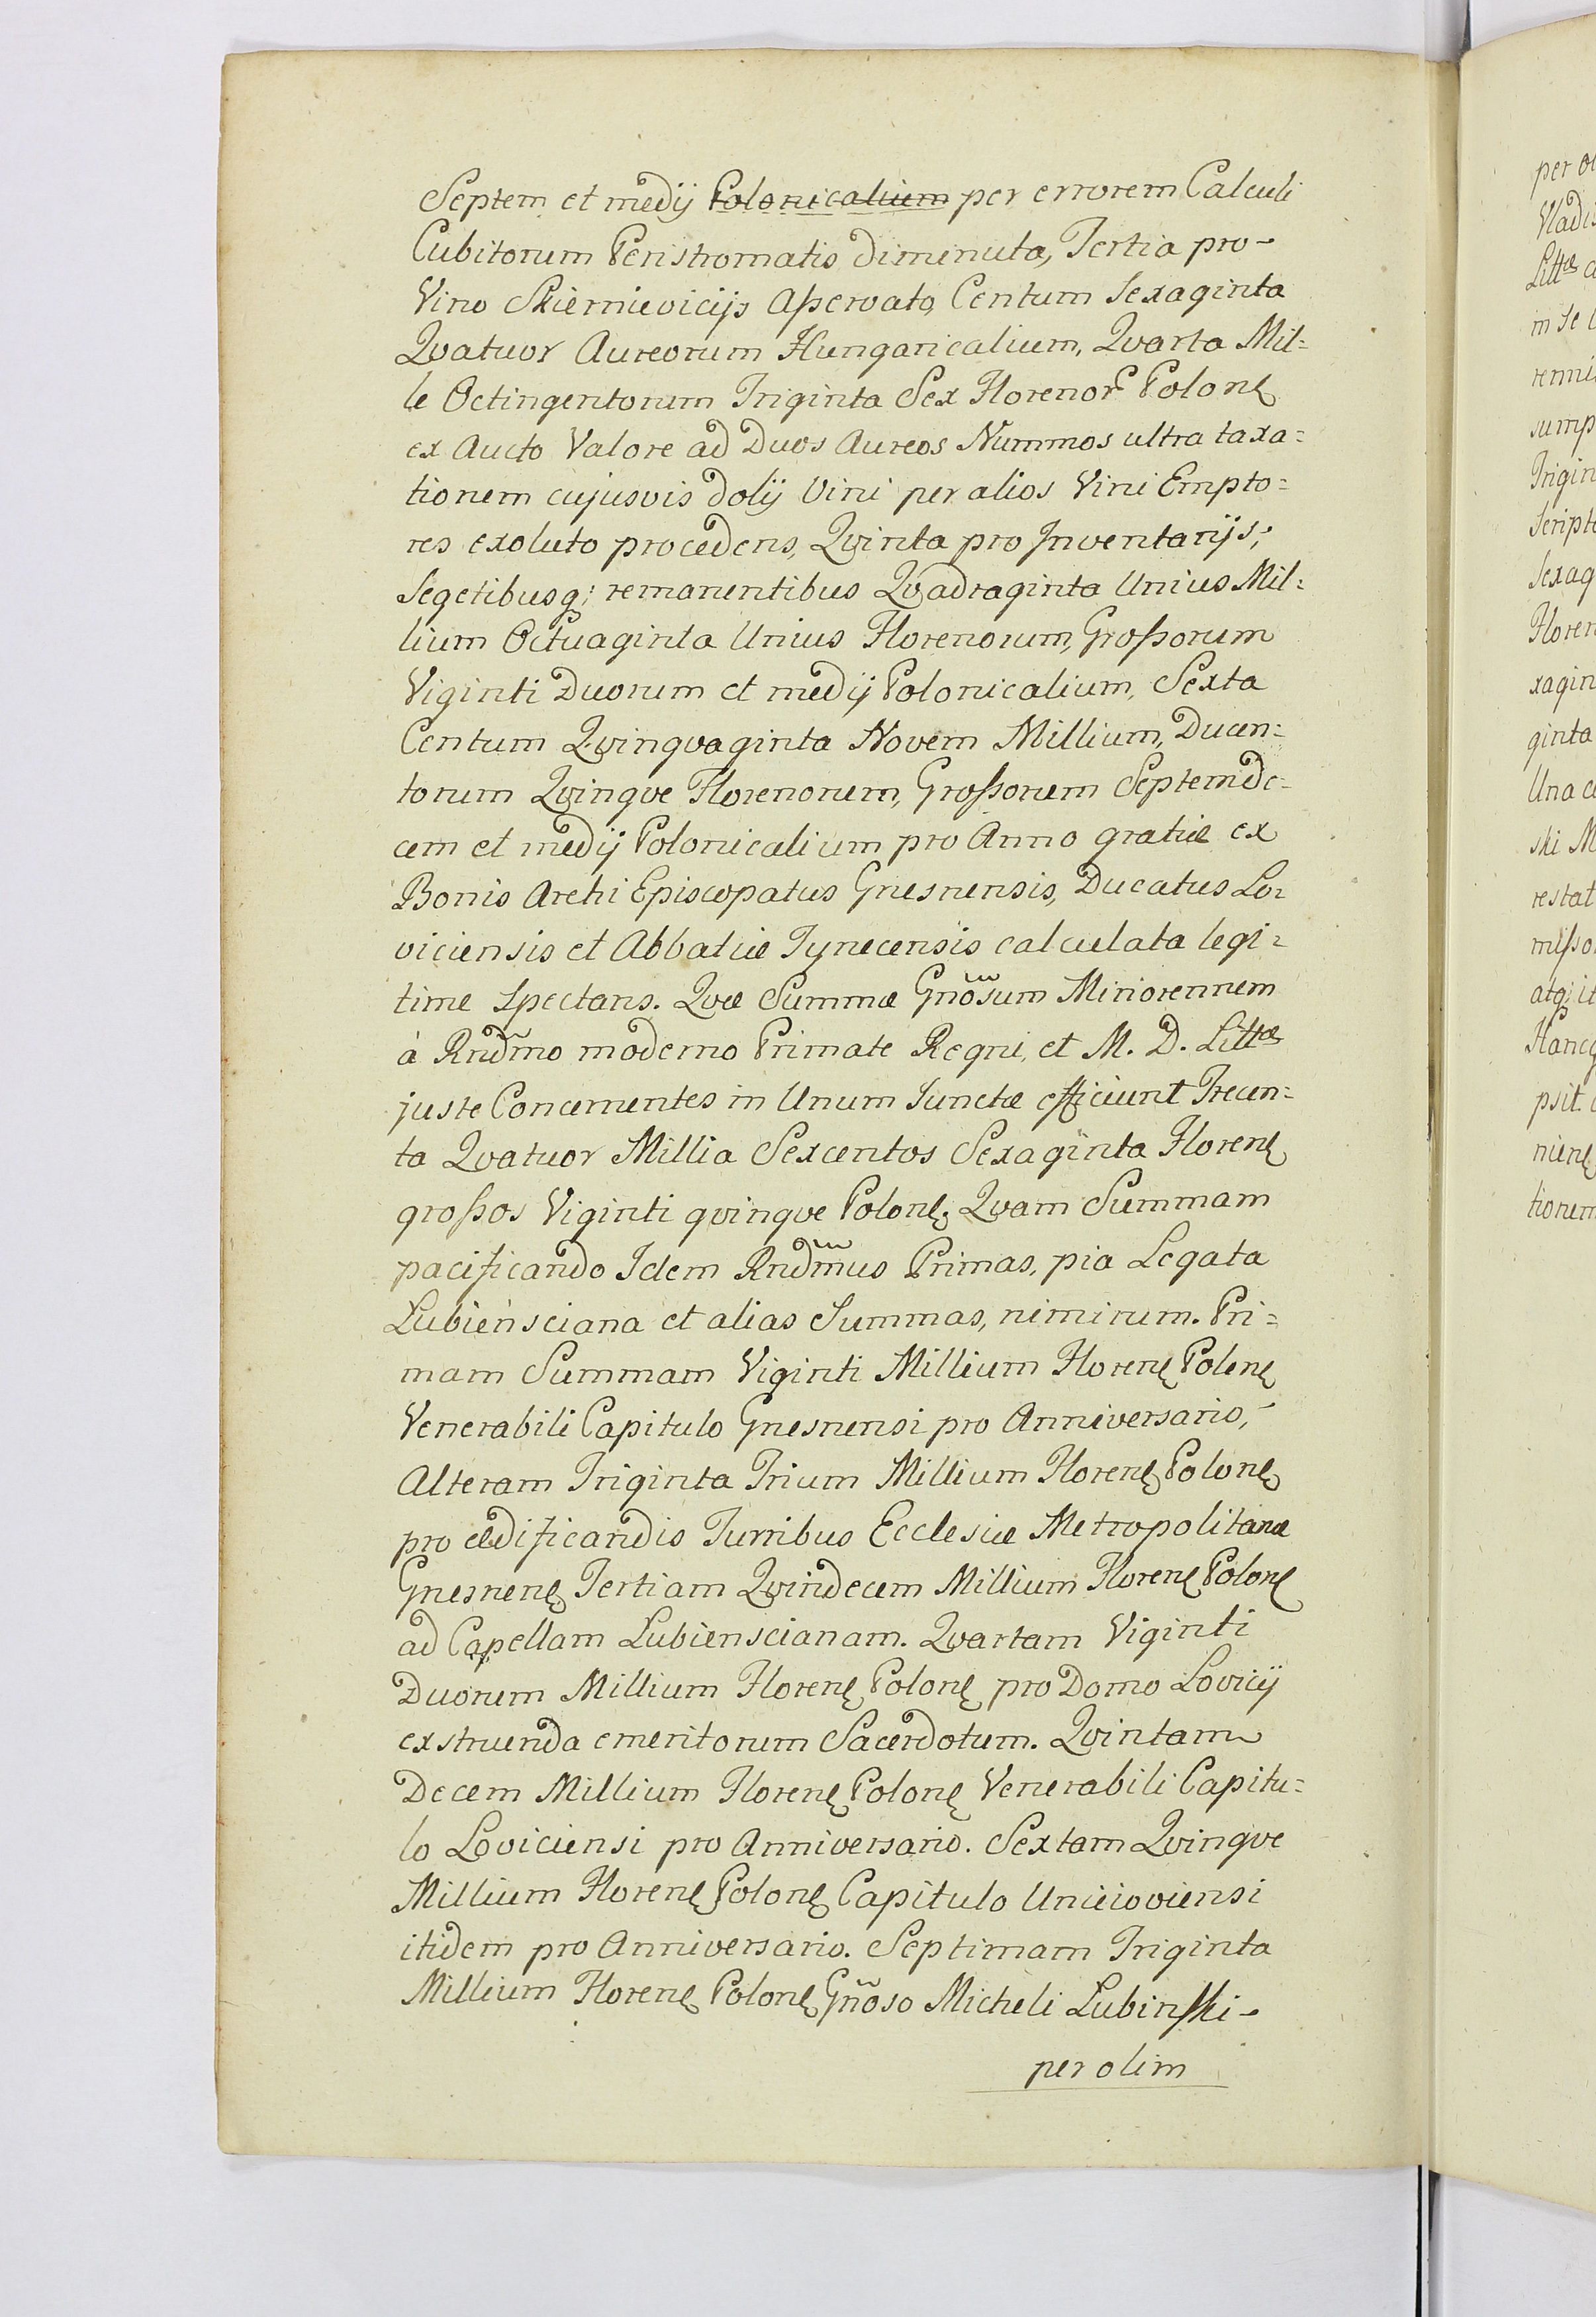 Septem et medij Polonicalium per errorem Calculi
Cubitorum Peristromatis diminuta, Tertia pro-
Vino Skiernievicijs Aßervato, Centum Sexaginta
Qvatuor Aureorum Hungaricalium, Qvarta Mil=
le Octingentorum Triginta Sex Florenor Polone
ex Aucto Valore ad Duos Aureos Nummos ultra taxa=
tionem cujusvis dolij Vini per alios Vini Empto=
res exoluto procedens, Qvinta pro Inventarijs,
Segetibusq; remanentibus Qvadraginta Unius Mil=
lium Octuaginta Unius Florenorum, Großorum
Viginti Duorum et medij Polonicalium, Sexta
Centum Qvinqvaginta Novem Millium, Ducen=
torum Qvinqve Florenorum, Großorum Septemde=
cem et medij Polonicalium pro Anno gratiæ ex
Bonis Archi Episcopatus Gnesnensis, Ducatus Lo=
viciensis et Abbatiæ Tynecensis calculata legi=
time Spectans. Qvæ Summæ Gnosum Minorennem
à Rndmo moderno Primate Regni, et M. D. Littæ
juste Concernentes in Unum Iunctæ efficiunt Trecen=
ta Qvatuor Millia Sexcentos Sexaginta Florene
großos Viginti qvinqve Polone. Qvam Summam
pacificando Idem Rndmus Primas, pia Legata
Lubiensciana et alias Summas, nimirum. Pri=
mam Summam Viginti Millium Florene Polone
Venerabili Capitulo Gnesnensi pro Anniversario,
Alteram Triginta Trium Millium Florene Polone
pro ædificandis Turribus Ecclesiæ Metropolitanæ
Gnesnene Tertiam Qvindecem Millium Florene Polone
ad Capellam Lubienscianam. Qvartam Viginti
Duorum Millium Florene Polone pro Domo Lovicij
exstruenda emeritorum Sacerdotum. Qvintam
Decem Millium Florene Polone Venerabili Capitu=
lo Loviciensi pro Anniversario. Sextam Qvinqve
Millium Florene Polone Capitulo Unieioviensi
itidem pro Anniversario. Septimam Triginta
Millium Florene Polone Gñoso Micheli Lubinski-
per olim